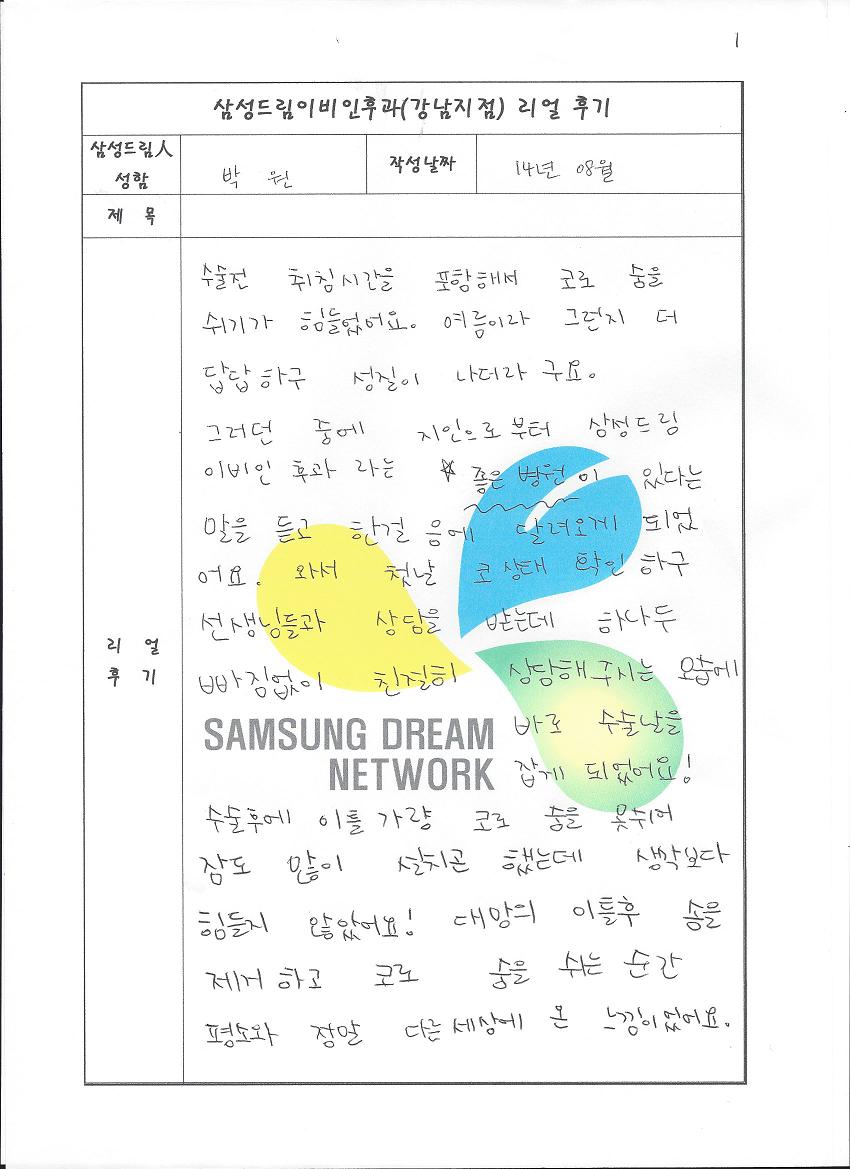 1
삼성드림이비인후과(강남지점) 리얼 후기
삼성드림人 성함 박 원 작성날짜 14년 08월
제 목
리 얼 후 기
수술전 취침시간을 포함해서 코로 숨을
쉬기가 힘들었어요. 여름이라 그런지 더
답답하구 성질이 나더라구요.
그러던 중에 지인으로부터 삼성드림
이비인후과 라는 ☆ 좋은 병원이 있다는
말을 듣고 한걸음에 달려오게 되었
어요. 와서 첫날 코상태 확인하구
선생님들과 상담을 받는데 하나두
빠짐없이 친절히 상담해주시는 모습에
바로 수술날을
잡게 되었어요!
SAMSUNG DREAM
NETWORK
수술후에 이틀가량 코로 숨을 못쉬어
잠도 많이 설치곤 했는데 생각보다
힘들지 않았어요! 대망의 이틀후 솜을
제거하고 코로 숨을 쉬는 순간
평소와 정말 다른세상에 온 느낌이었어요.